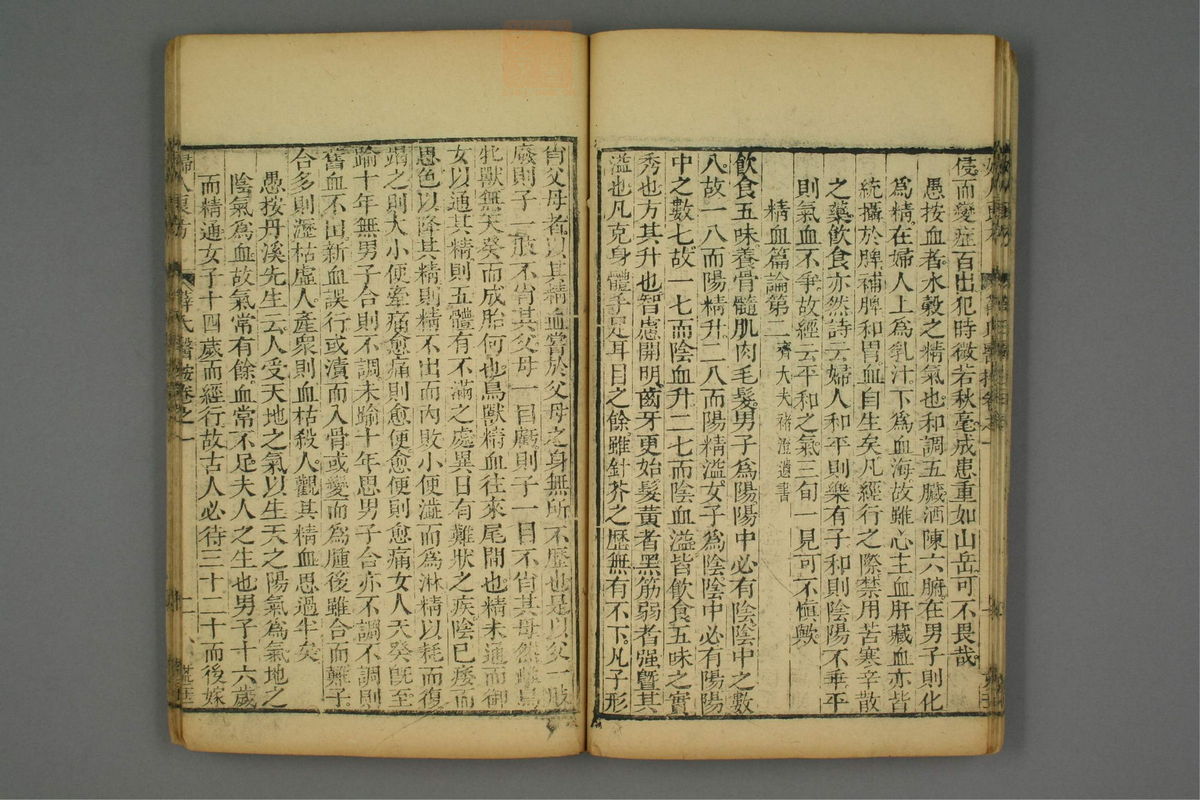 侵而變症百出犯時微若秋毫成患重如山岳可不畏哉
愚按血者水穀之精氣也和調五臟洒陳六腑在男子則化
爲精在婦人上爲乳汁下爲血海故雖心主血肝藏血亦皆
統攝於脾補脾和胃血自生矣凡經行之際禁用苦寒辛散
之藥飲食亦然詩云婦人和平則樂有子和則陰陽不乖平
則氣血不爭故經云平和之氣三旬一見可不慎歟
精血篇論第二 齊大夫禇澄遺書
飲食五味養骨髓肌肉毛髮男子爲陽陽中必有陰陰中之數
八故一八而陽精升二八而陽精溢女子爲陰陰中必有陽陽
中之數七故一七而陰血升二七而陰血溢皆飲食五味之實
秀也方其升也智慮開明齒牙更始髮黃者黑筋弱者强曁其
溢也凡克身體手足耳目之餘雖針芥之歷無有不下凡子形
肖父母者以其精血嘗於父母之身無所不歷也是以父一肢
廢則子一肢不肖其父母一目虧則子一目不肖其母然雌鳥
牝獸無天癸而成胎何也鳥獸精血往來尾閭也精未通而御
女以通其精則五體有不滿之處異日有難狀之疾陰已痿而
思色以降其精則精不出而内敗小便澁而爲淋精以耗而復
竭之則大小便牽痛愈痛則愈便愈便則愈痛女人天癸旣至
踰十年無男子合則不調未踰十年思男子合亦不調不調則
舊血不出新血誤行或漬而入骨或變而爲腫後雖合而難子
合多則瀝枯虛人產衆則血枯殺人觀其精血思過半矣
愚按丹溪先生云人受天地之氣以生天之陽氣爲氣地之
陰氣爲血故氣常有餘血常不足夫人之生也男子十六歲
而精通女子十四歲而經行故古人必待三十二十而後嫁
婦人良方
薛氏醫按卷之一